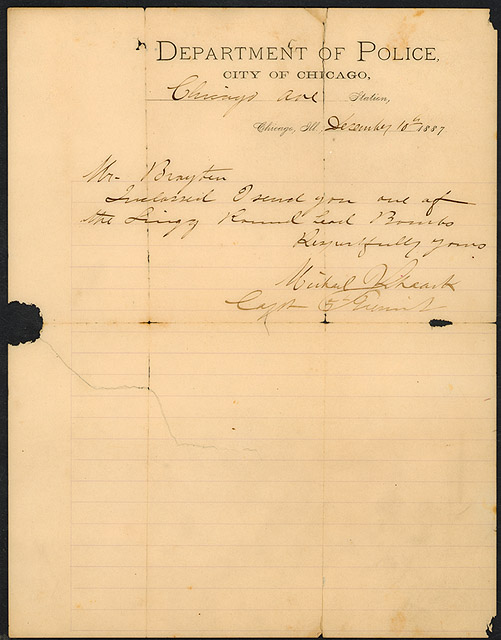 DEPARTMENT OF POLICE,
CITY OF CHICAGO,
Chicago Ave Station,
Chicago, Ill. December 10th 1887
Mr- Brayton
Inclosed I send you one of
the Lingg Round Lead Bombs
Respectfully yours
Michael J Schaack
Capt 5th